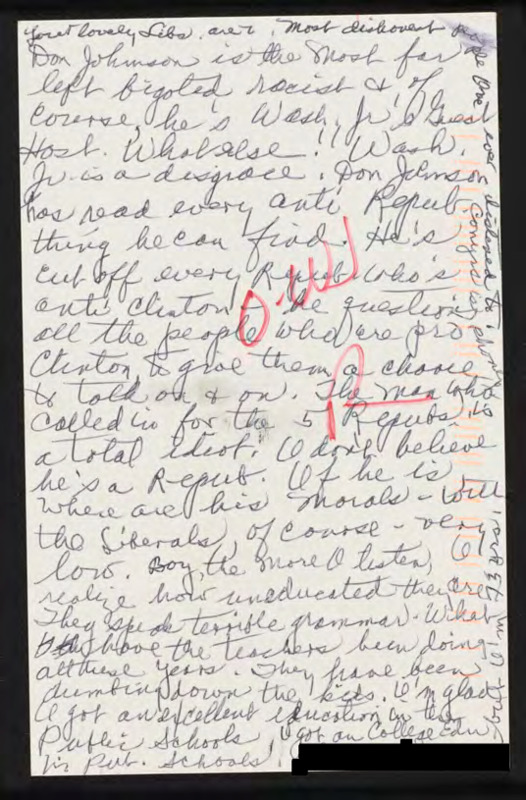 your lovely Libs. are
Most dishonest
Don Johnson is the most far
left bigoted racist & of
course, he's Wash. Jr's Guest
Host. What else!! Wash.
Jr. is a disgrace. Don Johnson
has read every anti Repub.
thing he can find. He's
cut off every Repub. who's
anti Clinton & he questions
all the people who are pro
Clinton, to give them a chance
to talk on & on. The man who
called in for the 5 Repubs. is
a total idiot. I don't believe
he's a Repub. If he is
where are his morals - with
the Liberals, of course - very
low. Boy, the more I listen, I
realize how uneducated they are
They speak terrible grammar. What
have the teachers been doing
all these years. They have been
dumbing down the kids. I'm glad
I got an excellent education in the
Public Schools I got an College Edu.
in Pub. Schools!
one ever listened to